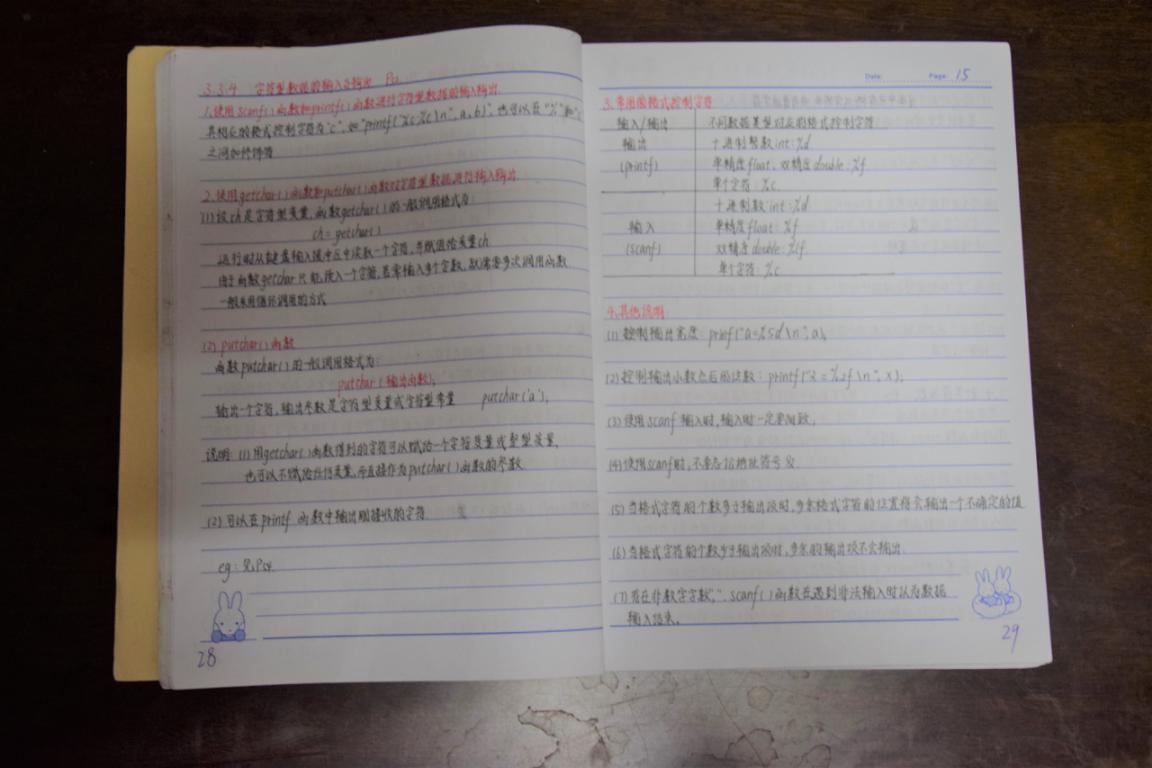 3.3.4 字符型数据的输入及输出 P52
1.使用scanf()函数和printf()函数进行字符型数据的输入输出
其相应的格式控制字符为"c", 如"printf("%c%c\n", a, b)", 也可以在"%"和"c"
之间加修饰符
2.使用getchar()函数和putchar()函数对字符型数据进行输入输出
(1)设ch是字符型变量,函数getchar()的一般调用格式为:
ch = getchar()
运行时从键盘输入缓冲区中读取一个字符,并赋值给变量ch
由于函数getchar只能读入一个字符,若需输入多个字数,就需要多次调用函数
一般采用循环调用的方式
(2) putchar()函数
函数putchar()的一般调用格式为:
putchar(输出函数);
输出一个字符,输出参数是字符型变量或字符型常量 putchar('a');
说明: (1)用getchar()函数得到的字符可以赋给一个字符变量或整型变量,
也可以不赋给任何变量,而直接作为putchar()函数的参数
(2)可以在printf函数中输出刚接收的字符.
eg: 见P54
28
Date: Page: 15
3.常用的格式控制字符
输入/输出 不同数据类型对应的格式控制字符
输出 十进制整数int:%d
(printf) 单精度float、双精度double:%f
单个字符:%c
十进制数int:%d
输入 单精度float:%f
(scanf) 双精度double:%lf
单个字符:%c
4.其他说明
(1)控制输出宽度: prinf("a=%5d\n", a);
(2)控制输出小数点后的位数: printf("2=%.2f\n", x);
(3)使用scanf输入时,输入时一定要
(4)使用scanf时,不要忘记地址符号&
(5)当格式字符的个数多于输出项时,多余格式字符的位置将会输出一个不确定的值
(6)当格式字符的个数少于输出项时,多余的输出项不会输出.
(7)存在非数字字数"," scanf()函数在遇到非法输入时以为数据
输入结束。
29